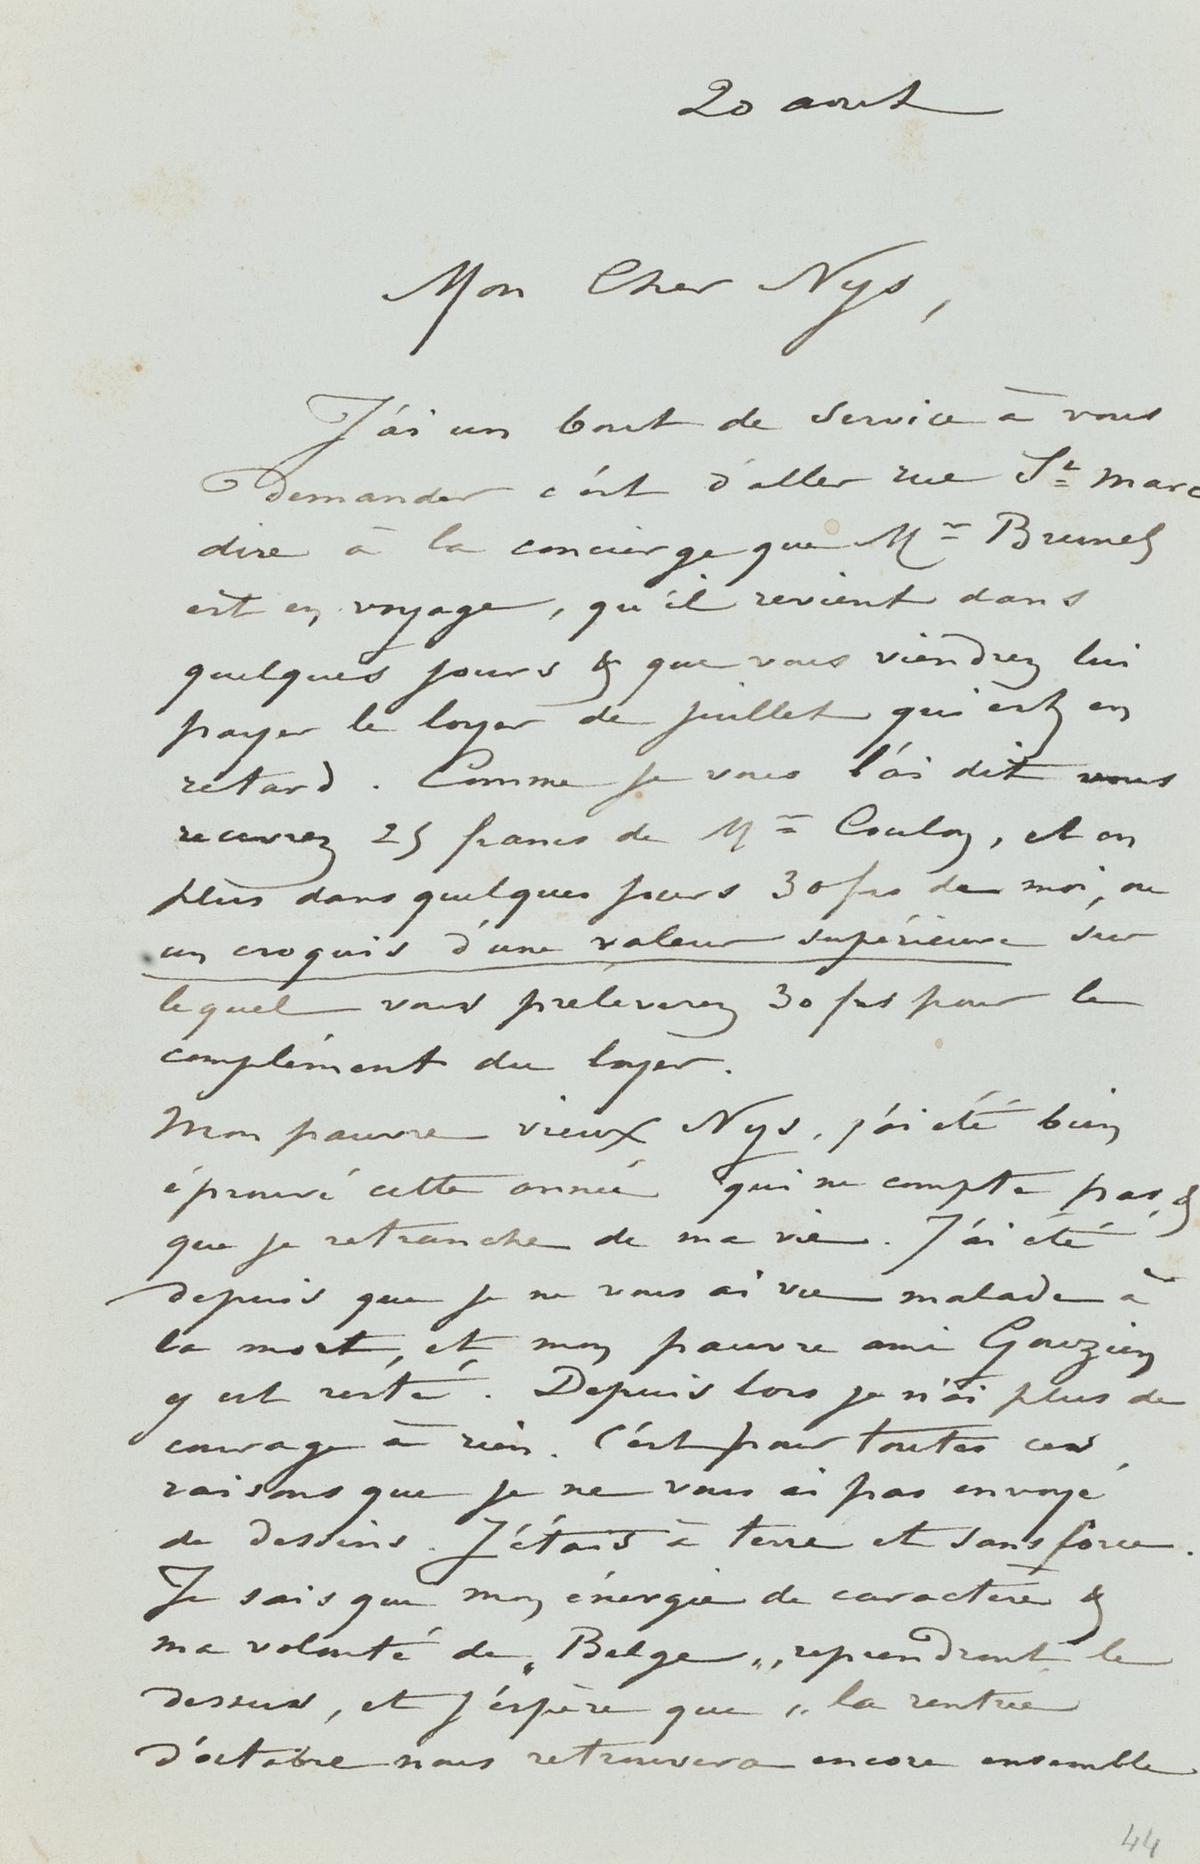 20 aout
Mon Cher Nys,
J'ai un bout de service à vous
demander c'est d'aller rue St Marc
dire à la concierge que Mr Brunel
est en voyage, qu'il revient dans
quelques jours & que vous viendrez lui
payer le loyer de juillet qui est en
retard. Comme je vous l'ai dit vous
recevrez 25 francs de Mr Coulon, et en
plus dans quelques jours 30 frs de moi, ou
un croquis d'une valeur supérieure sur
lequel vous preleverez 30 frs pour le
complément du loyer.
Mon pauvre vieux Nys, j'ai été bien
éprouvé cette année qui ne compte pas, &
que je retranche de ma vie. J'ai été
depuis que je ne vous ai vu malade à
la mort, et mon pauvre ami Gouzien
y est resté. Depuis lors je n'ai plus de
courage à rien. C'est pour toutes ces
raisons que je ne vous ai pas envoyé
de dessins. J'étais à terre et sans force.
Je sais que mon énergie de caractère &
ma volonté de „Belge„ reprendront le
dessus, et j'espère que „la rentrée
d'octobre nous retrouvera encore ensemble
44